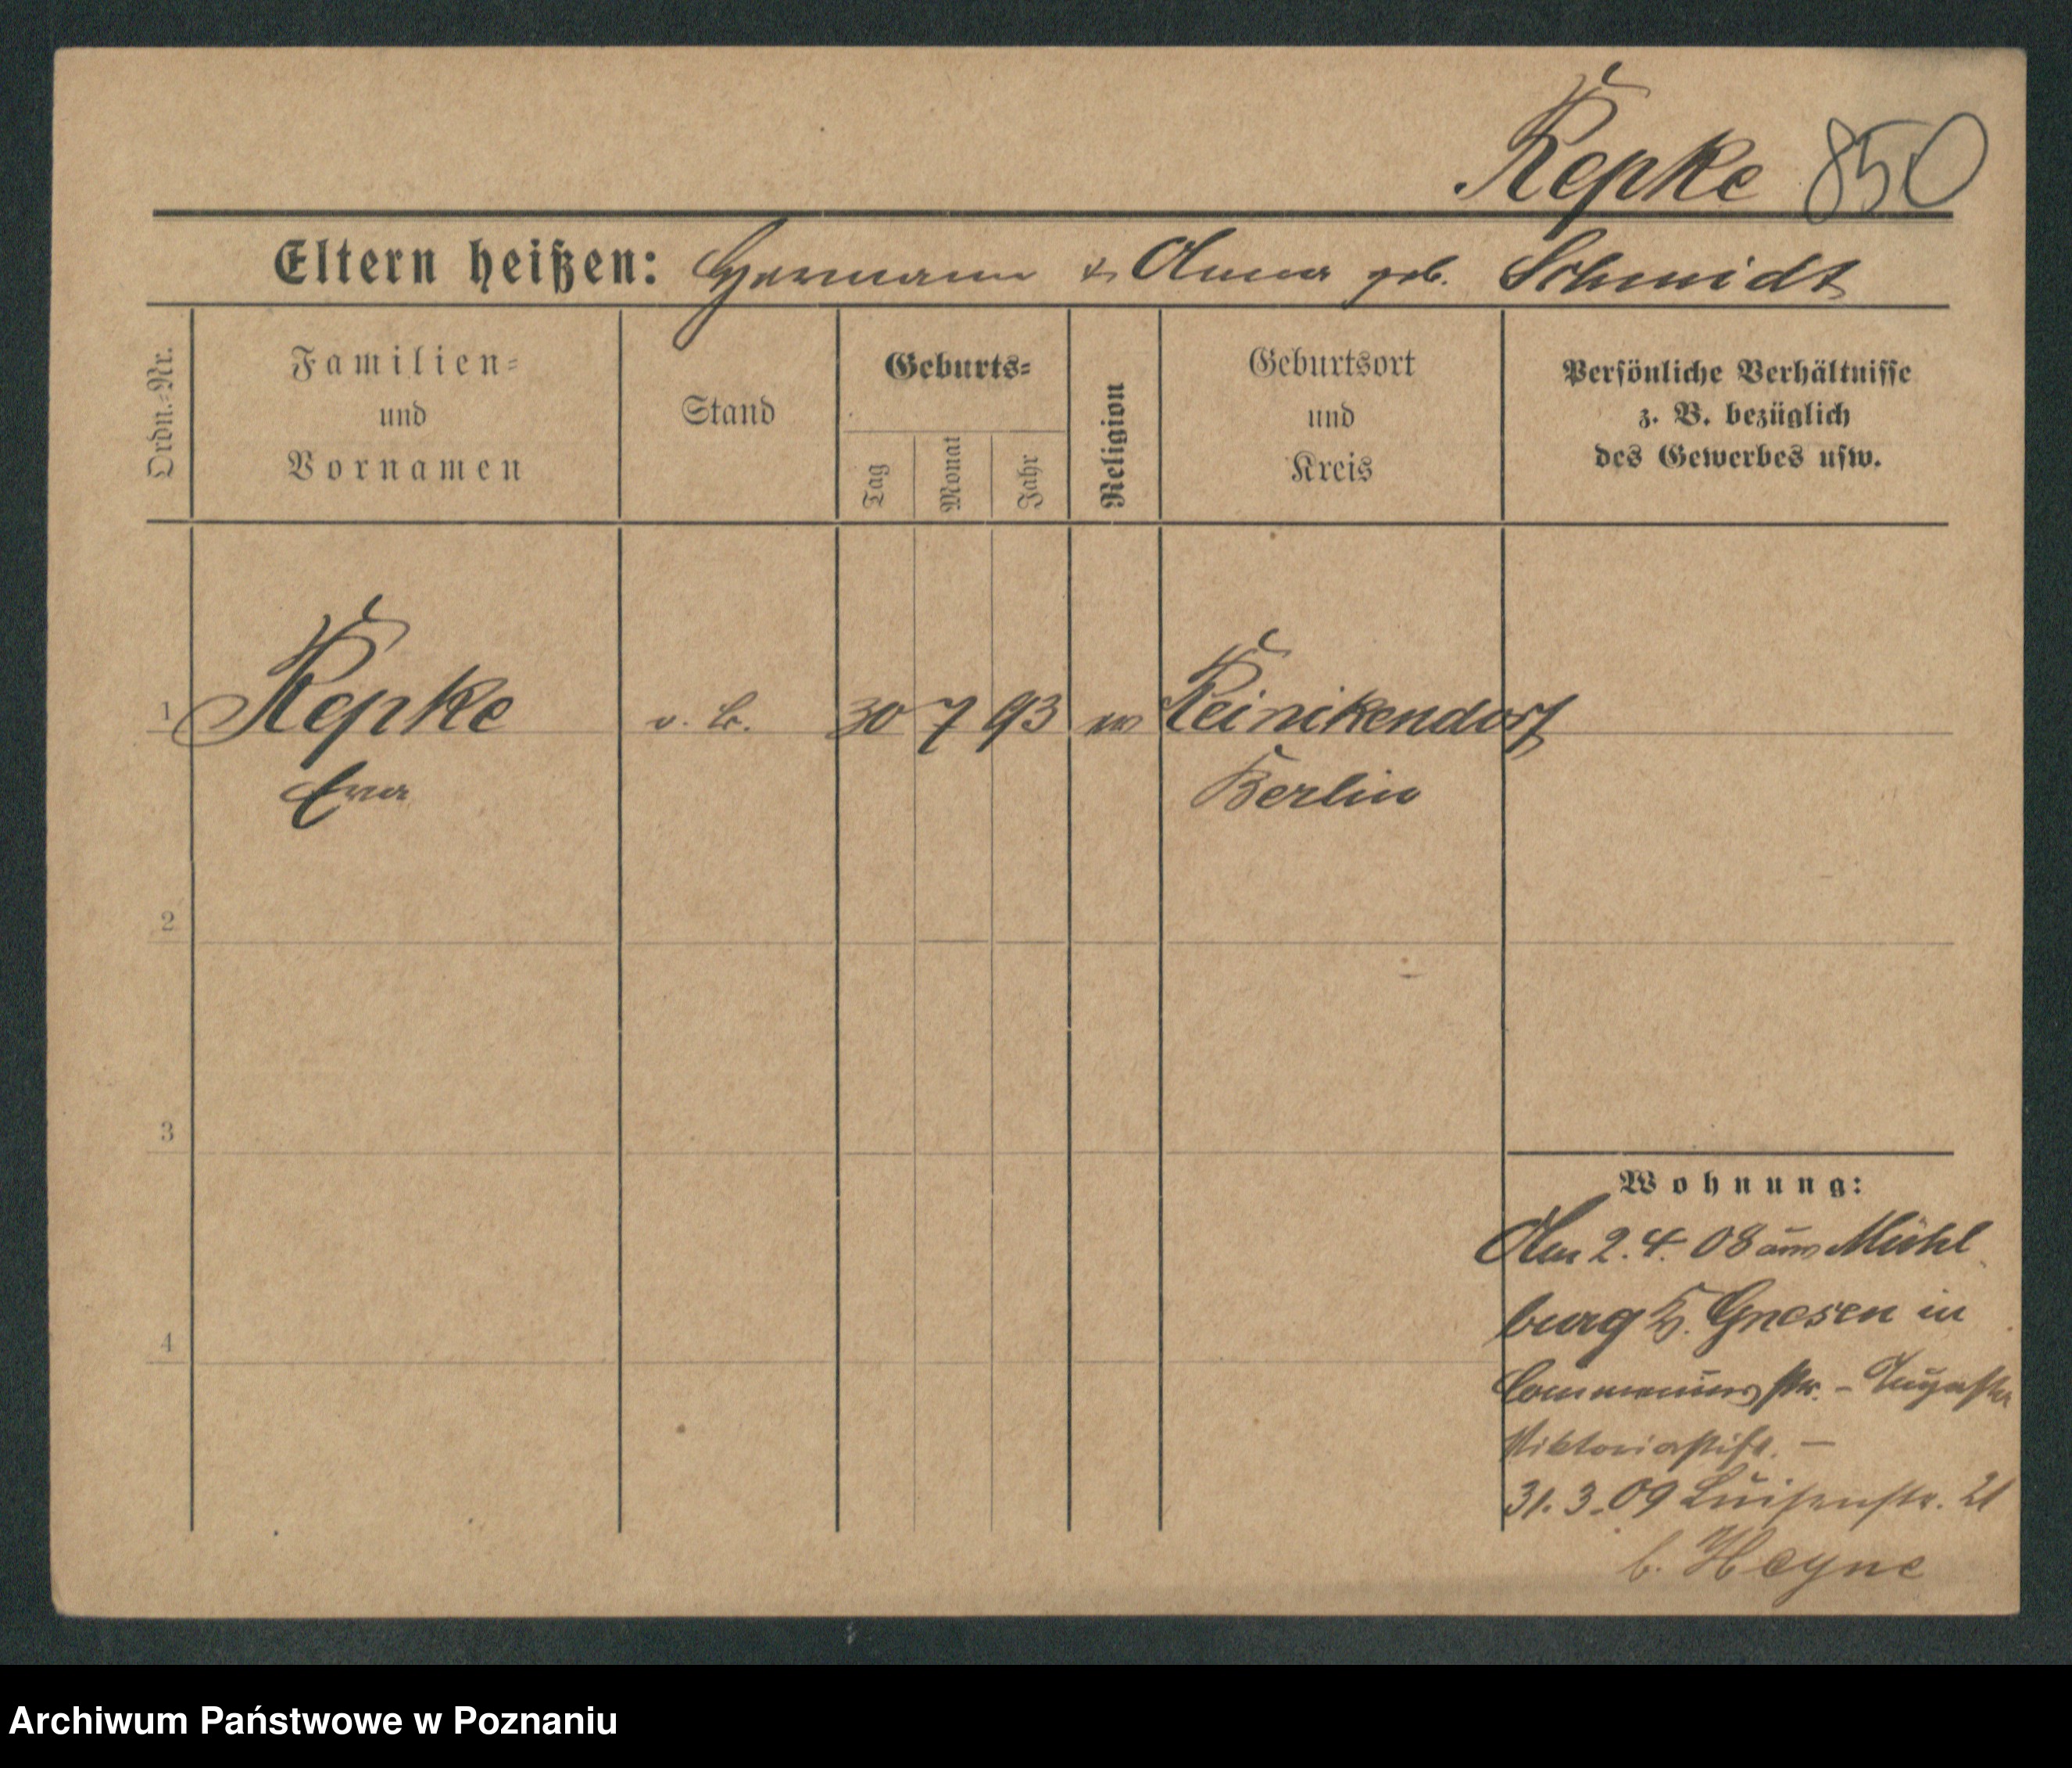 Repke 850
Eltern heißen: Hermann & Anna geb. Schmidt
Ordn.-Nr.
Familien-
und
Vornamen
Stand
Geburts-
Tag
Monat
Jahr
Religion
Geburtsort
und
Kreis
Persönliche Verhältnisse
z. B. bezüglich
des Gewerbes usw.
1 Repke 30 7 93 ev Reinikendorf
Eva Berlin
2
3
4
Wohnung:
2.4.08 aus Mühl
burg Gnesen in
str. - Augusta
Viktoriastift. -
31.3.09 Luisenstr. 21
b. Heyne
Archiwum Państwowe w Poznaniu